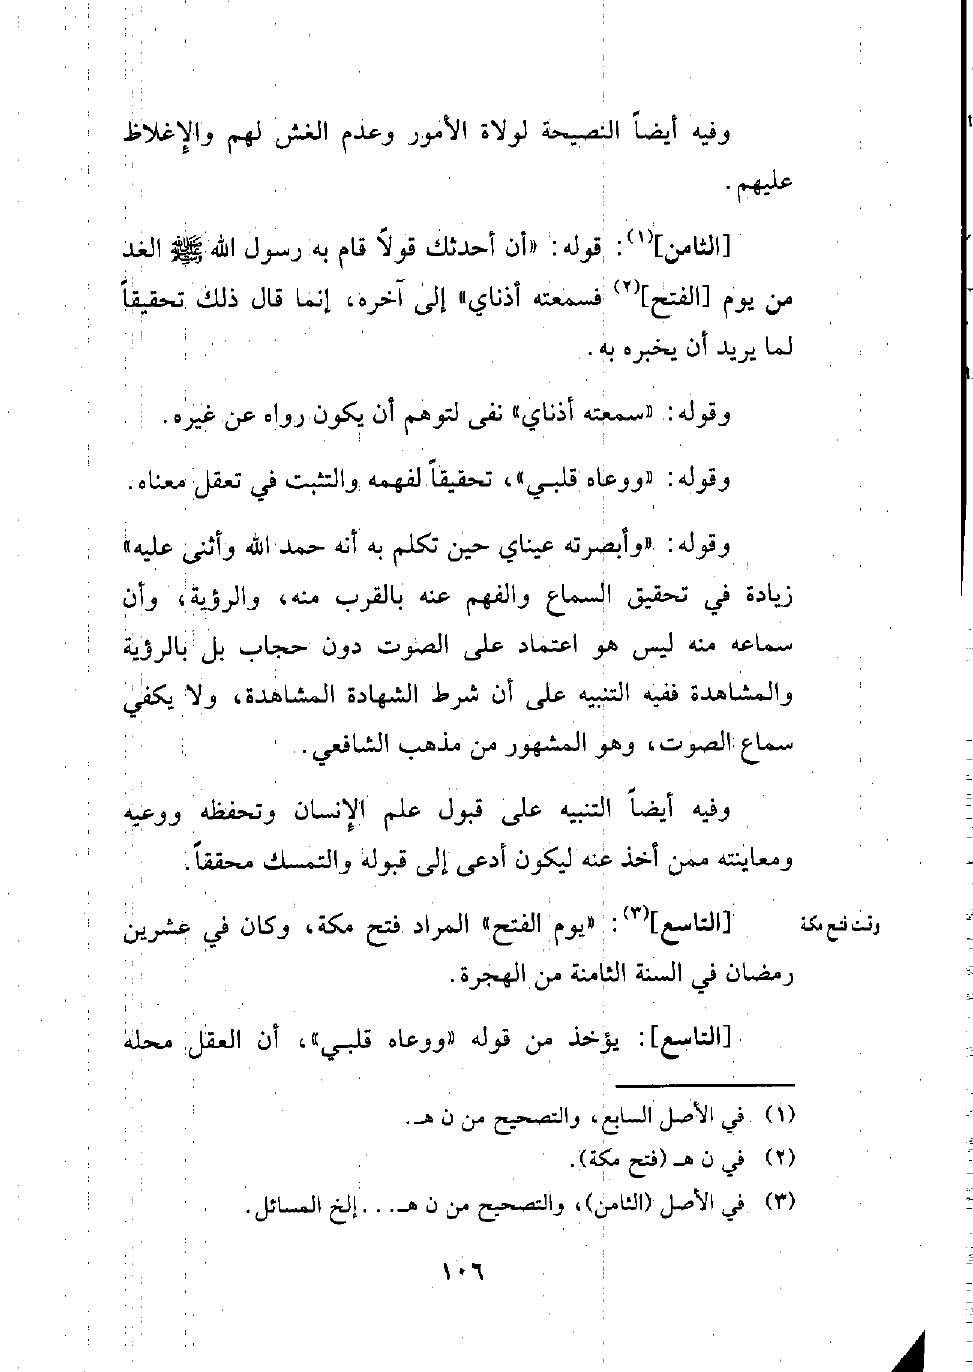 وفيه أيضاً النصيحة لولاة الأمور وعدم الغش لهم والإغلاظ
عليهم.
[الثامن](١): قوله: «أن أحدثك قولاً قام به رسول الله ﷺ الغد
من يوم [الفتح](٢) فسمعته أذناي» إلى آخره، إنما قال ذلك تحقيقاً
لما يريد أن يخبره به.
وقوله: «سمعته أذناي» نفى لتوهم أن يكون رواه عن غيره.
وقوله: «ووعاه قلبي»، تحقيقاً لفهمه والتثبت في تعقل معناه.
وقوله: «وأبصرته عيناي حين تكلم به أنه حمد الله وأثنى عليه»
زيادة في تحقيق السماع والفهم عنه بالقرب منه، والرؤية، وأن
سماعه منه ليس هو اعتماد على الصوت دون حجاب بل بالرؤية
والمشاهدة ففيه التنبيه على أن شرط الشهادة المشاهدة، ولا يكفي
سماع الصوت، وهو المشهور من مذهب الشافعي.
وفيه أيضاً التنبيه على قبول علم الإنسان وتحفظه ووعيه
ومعاينته ممن أخذ عنه ليكون أدعى إلى قبوله والتمسك محققاً.
وقت فتح مكة
[التاسع](٣): «يوم الفتح» المراد فتح مكة، وكان في عشرين
رمضان في السنة الثامنة من الهجرة.
[التاسع]: يؤخذ من قوله «ووعاه قلبي»، أن العقل محله
(١) في الأصل السابع، والتصحيح من ن هـ.
(٢) في ن هـ (فتح مكة).
(٣) في الأصل (الثامن)، والتصحيح من ن هـ... إلخ المسائل.
١٠٦